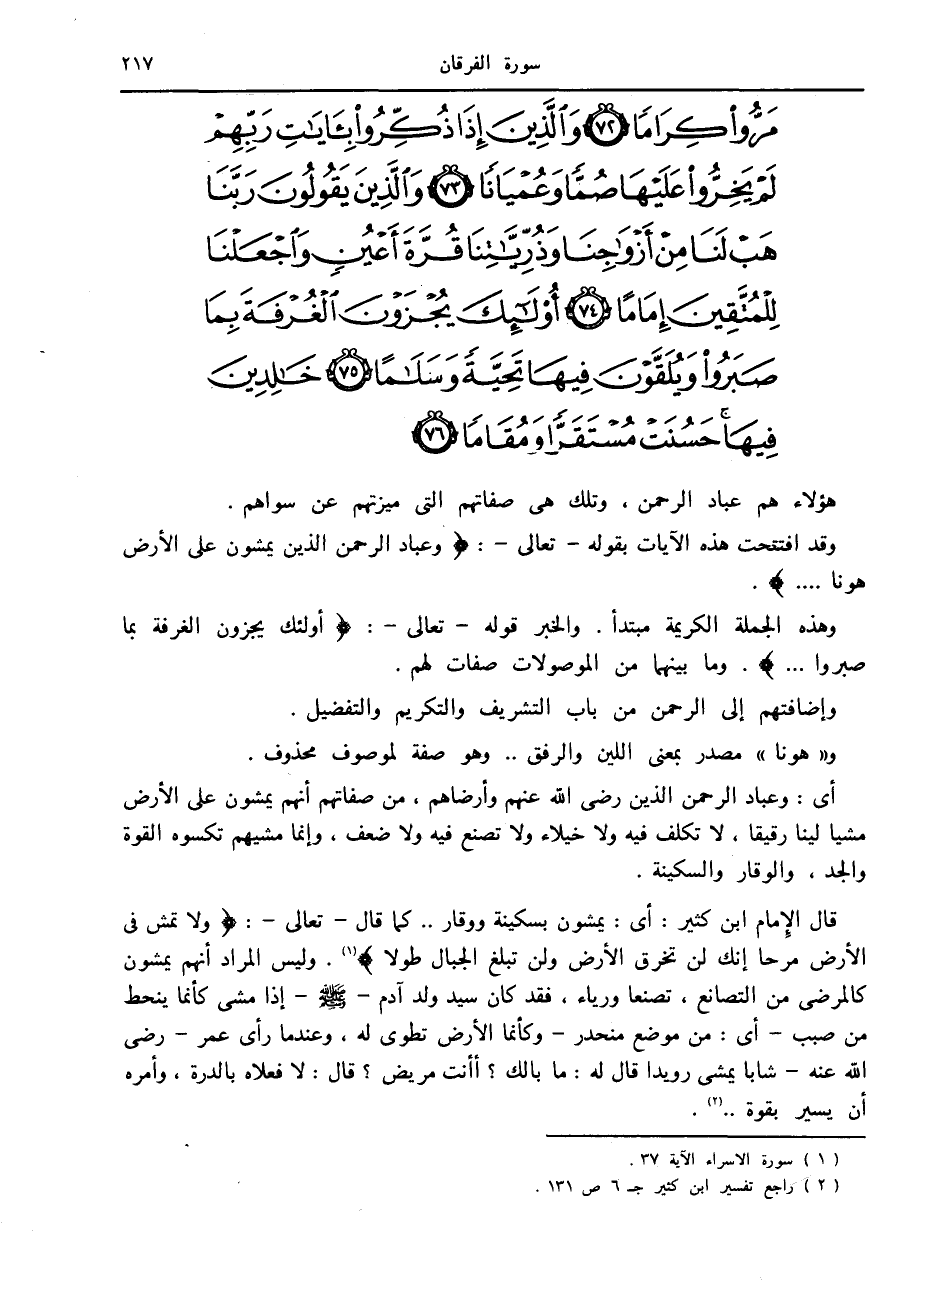 سورة الفرقان ٢١٧
مَرُّوا۟ كِرَامًا ٧٢ وَٱلَّذِينَ إِذَا ذُكِّرُوا۟ بِـَٔايَـٰتِ رَبِّهِمْ
لَمْ يَخِرُّوا۟ عَلَيْهَا صُمًّا وَعُمْيَانًا ٧٣ وَٱلَّذِينَ يَقُولُونَ رَبَّنَا
هَبْ لَنَا مِنْ أَزْوَٰجِنَا وَذُرِّيَّـٰتِنَا قُرَّةَ أَعْيُنٍ وَٱجْعَلْنَا
لِلْمُتَّقِينَ إِمَامًا ٧٤ أُو۟لَـٰٓئِكَ يُجْزَوْنَ ٱلْغُرْفَةَ بِمَا
صَبَرُوا۟ وَيُلَقَّوْنَ فِيهَا تَحِيَّةً وَسَلَـٰمًا ٧٥ خَـٰلِدِينَ
فِيهَا ۚ حَسُنَتْ مُسْتَقَرًّا وَمُقَامًا ٧٦
هؤلاء هم عباد الرحمن ، وتلك هى صفاتهم التى ميزتهم عن سواهم .
وقد افتتحت هذه الآيات بقوله - تعالى - : ﴿ وعباد الرحمن الذين يمشون على الأرض
هونا .... ﴾ .
وهذه الجملة الكريمة مبتدأ . والخبر قوله - تعالى - : ﴿ أولئك يجزون الغرفة بما
صبروا ... ﴾ . وما بينهما من الموصولات صفات لهم .
وإضافتهم إلى الرحمن من باب التشريف والتكريم والتفضيل .
و« هونا » مصدر بمعنى اللين والرفق .. وهو صفة لموصوف محذوف .
أى : وعباد الرحمن الذين رضى الله عنهم وأرضاهم ، من صفاتهم أنهم يمشون على الأرض
مشيا لينا رقيقا ، لا تكلف فيه ولا خيلاء ولا تصنع فيه ولا ضعف ، وإنما مشيهم تكسوه القوة
والجد ، والوقار والسكينة .
قال الإمام ابن كثير : أى : يمشون بسكينة ووقار .. كما قال - تعالى - : ﴿ ولا تمش فى
الأرض مرحا إنك لن تخرق الأرض ولن تبلغ الجبال طولا ﴾(١) . وليس المراد أنهم يمشون
كالمرضى من التصانع ، تصنعا ورياء ، فقد كان سيد ولد آدم - ﷺ - إذا مشى كأنما ينحط
من صبب - أى : من موضع منحدر - وكأنما الأرض تطوى له ، وعندما رأى عمر - رضى
الله عنه - شابا يمشى رويدا قال له : ما بالك ؟ أأنت مريض ؟ قال : لا فعلاه بالدرة ، وأمره
أن يسير بقوة ..(٢) .
( ١ ) سورة الاسراء الآية ٣٧ .
( ٢ ) راجع تفسير ابن كثير جـ ٦ ص ١٣١ .